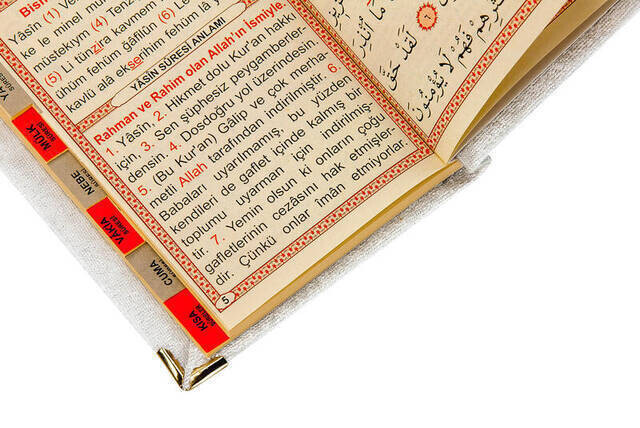 Yâsin (1)
müstekıym (4) Tenz
(5) Li tünzira kavmem
ühüm fehüm ğâfilûn (6) Le
kavlü alâ ekserihim fehüm lâ
YÂSİN SÛRESİ ANLAMI
Rahman ve Rahim olan Allah'ın İsmiyle.
1. Yâsin, 2. Hikmet dolu Kur'an hakkı
için, 3. Sen şüphesiz peygamberler-
densin. 4. Dosdoğru yol üzerindesin.
5. (Bu Kur'an) Gâlip ve çok merha-
metli Allah tarafından indirilmiştir. 6.
Babaları uyarılmamış, bu yüzden
kendileri de gaflet içinde kalmış bir
toplumu uyarman için indirilmiş-
tir. 7. Yemin olsun ki onların çoğu
gafletlerinin cezâsını hak etmişler-
dir. Çünkü onlar îmân etmiyorlar.
5
MÜLK SÛRESİ
NEBE
VAKIA SÛRESİ
CUMA
KISA SÛRELER
لَقَدْ حَقَّ
فَهُمْ لَا يُؤْمِنُونَ
٦